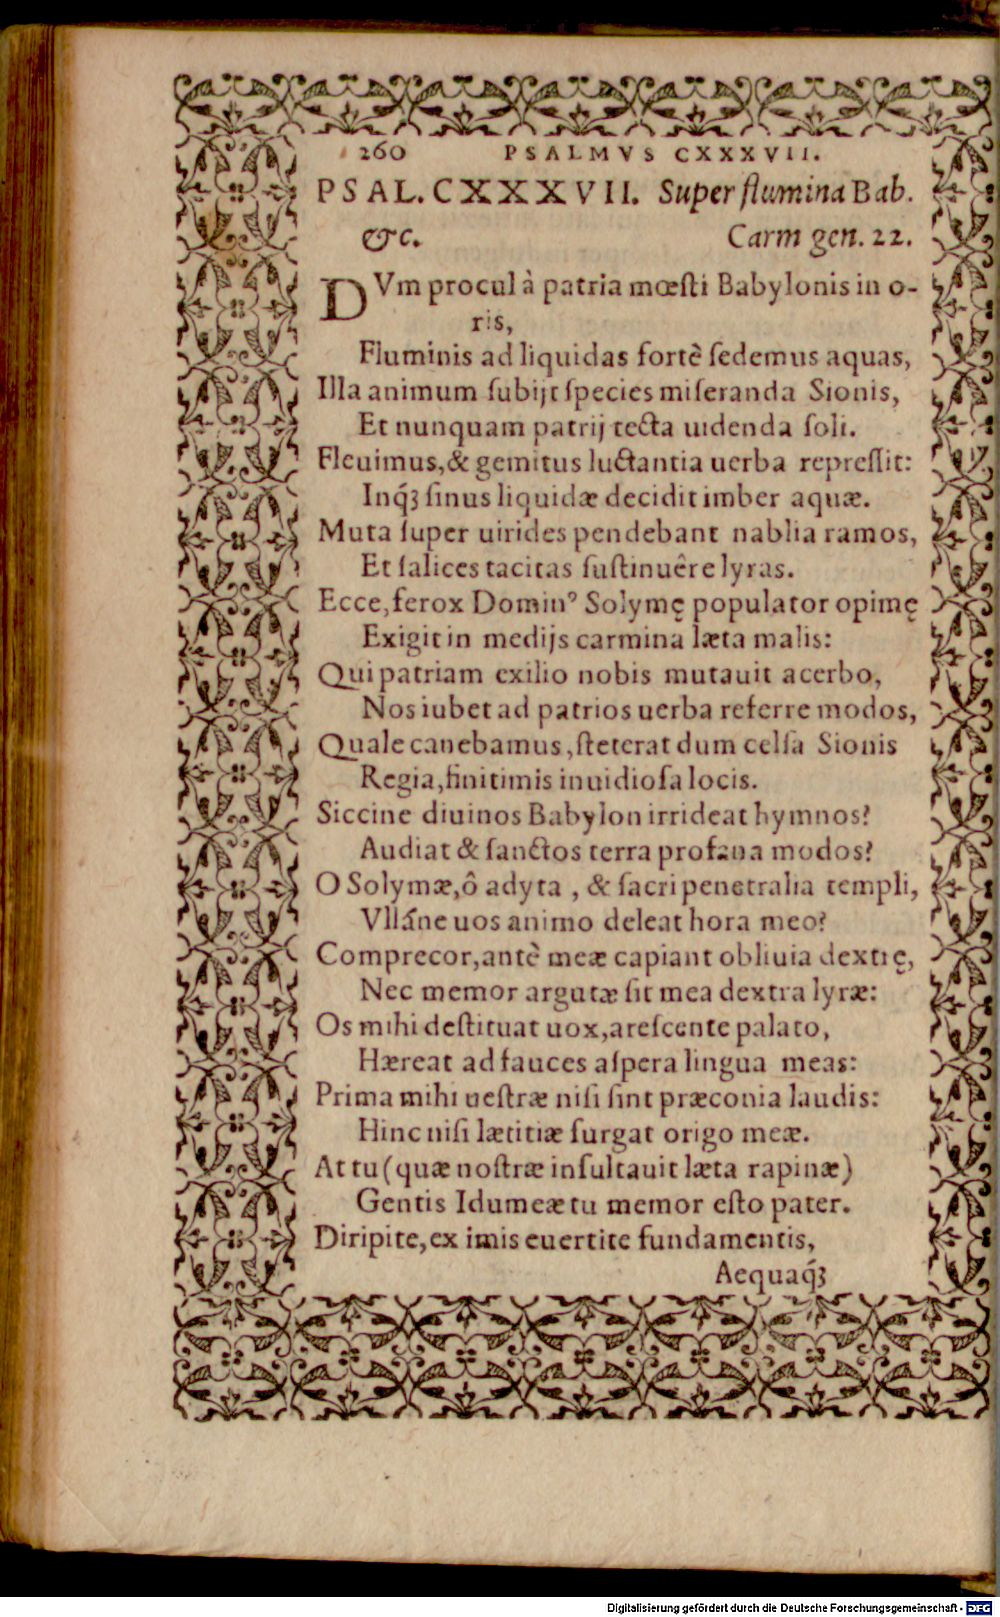 260 PSALMVS CXXXVII.
PSAL. CXXXVII. Super flumina Bab.
&c. Carm gen. 22.
DVm procul à patria mœſti Babylonis in o-
ris,
Fluminis ad liquidas fortè ſedemus aquas,
Illa animum ſubijt ſpecies miſeranda Sionis,
Et nunquam patrij tecta uidenda ſoli.
Fleuimus, & gemitus luctantia uerba repreſſit:
Inq́ꝫ ſinus liquidæ decidit imber aquæ.
Muta ſuper uirides pendebant nablia ramos,
Et ſalices tacitas ſuſtinuêre lyras.
Ecce, ferox Dominꝰ Solymę populator opimę
Exigit in medijs carmina læta malis:
Qui patriam exilio nobis mutauit acerbo,
Nos iubet ad patrios uerba referre modos,
Quale canebamus, ſteterat dum celſa Sionis
Regia, finitimis inuidioſa locis.
Siccine diuinos Babylon irrideat hymnos?
Audiat & ſanctos terra profana modos?
O Solymæ, ô adyta, & ſacri penetralia templi,
Vllńáne uos animo deleat hora meo?
Comprecor, antè meæ capiant obliuia dextrę,
Nec memor argutæ ſit mea dextra lyræ:
Os mihi deſtituat uox, areſcente palato,
Hæreat ad fauces aſpera lingua meas:
Prima mihi ueſtræ niſi ſint præconia laudis:
Hinc niſi lætitiæ ſurgat origo meæ.
At tu (quæ noſtræ inſultauit læta rapinæ)
Gentis Idumeæ tu memor eſto pater.
Diripite, ex imis euertite fundamentis,
Aequaq́ꝫ
Digitalisierung gefördert durch die Deutsche Forschungsgemeinschaft - DFG